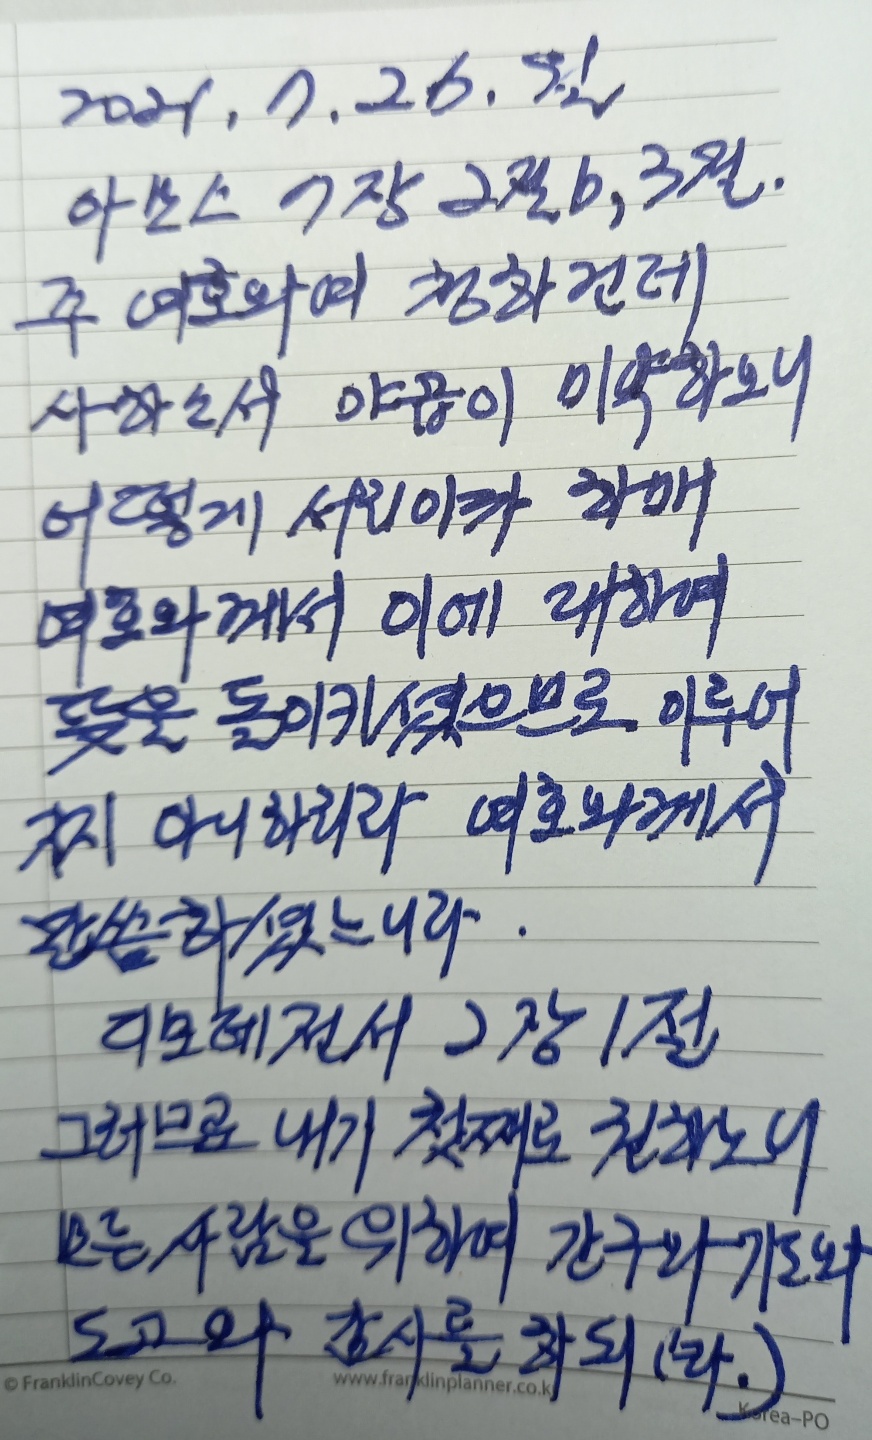 2021. 7. 26. 월
아모스 7장 2절b, 3절.
주 여호와여 청하건데
사하소서 야곱이 미약하오니
어떻게 서리이까 하매
여호와께서 이에 대하여
뜻을 돌이키셨으므로 이루어
지지 아니하리라 여호와께서
말씀하셨느니라.
디모데전서 2장 1절
그러므로 내가 첫째로 권하노니
모든 사람을 위하여 간구와 기도와
도고와 감사를 하되 (라.)
© FranklinCovey Co. www.franklinplanner.co.k Korea-PO